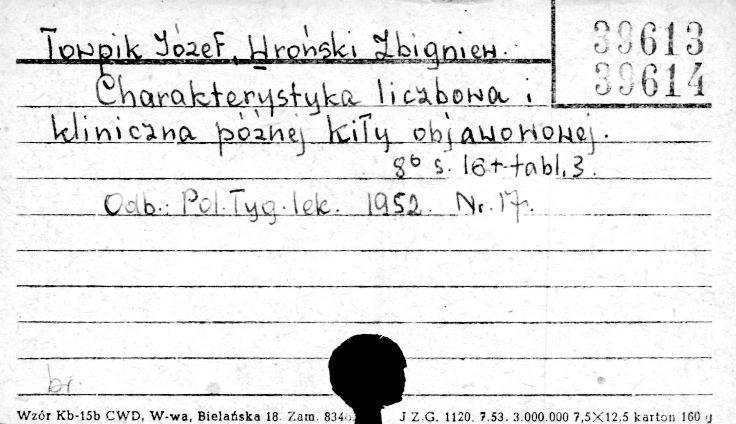 Towpik Józef, Wroński Zbigniew.
39613
39614
Charakterystyka liczbowa i
kliniczna późnej kiły objawowowej.
8° s. 16+tabl. 3.
Odb.: Pol. Tyg. lek. 1952. Nr. 17.
br.
Wzór Kb-15b CWD, W-wa, Bielańska 18. Zam. 834 J.Z.G. 1120. 7.53. 3.000.000 7,5×12,5 karton 160 g